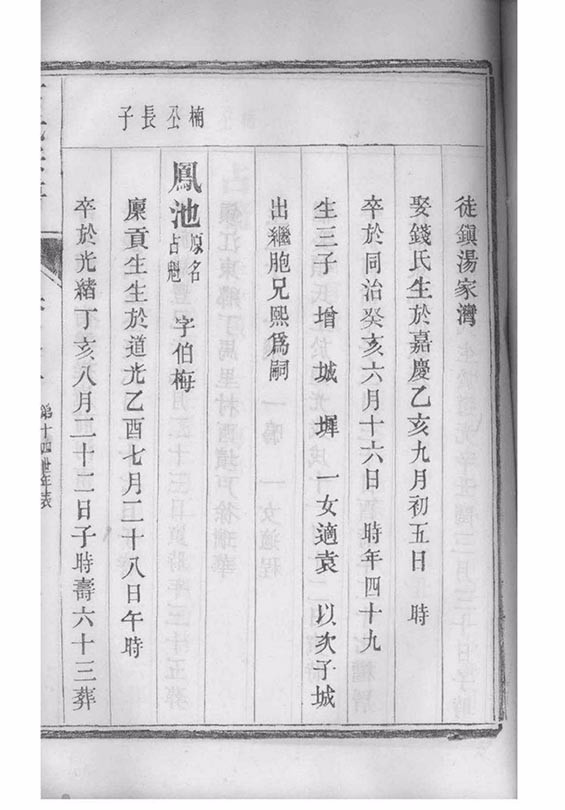 楠丞長子
徒鎮湯家灣
娶錢氏生於嘉慶乙亥九月初五日 時
卒於同治癸亥六月十六日 時年四十九
生三子 增 城 墀 一女適袁 以次子城
出繼胞兄熙爲嗣
鳳池原名占魁 字伯梅
廩貢生生於道光乙酉七月二十八日午時
卒於光緒丁亥八月二十二日子時壽六十三葬
第十四世年表